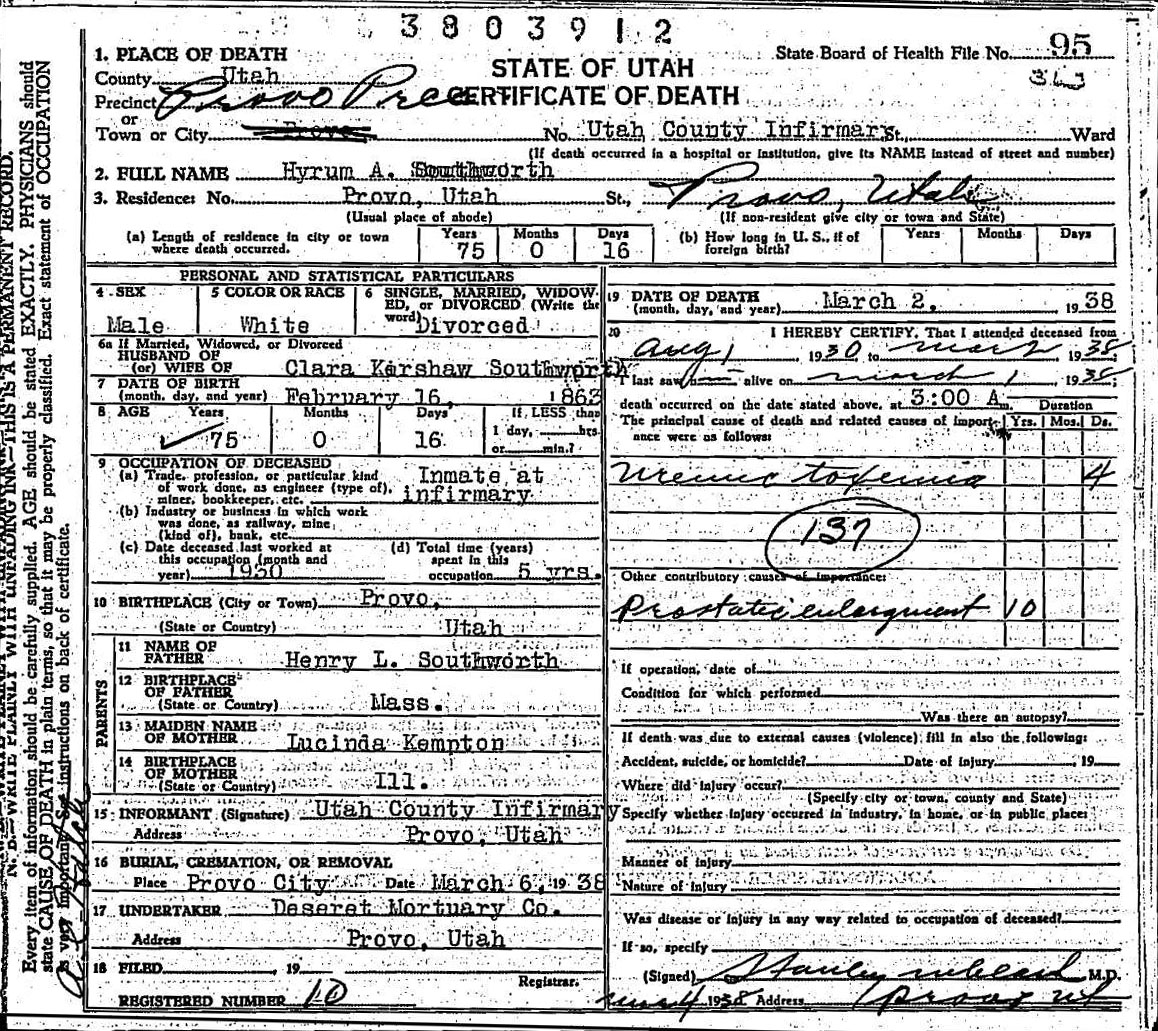 3803912
1. PLACE OF DEATH
State Board of Health File No. 95
County Utah
STATE OF UTAH
Precinct Provo Prec
CERTIFICATE OF DEATH
or
Town or City Provo No. Utah County Infirmary St. Ward
(If death occurred in a hospital or institution, give its NAME instead of street and number)
2. FULL NAME Hyrum A. Southworth
3. Residence: No. Provo, Utah St., Provo, Utah
(Usual place of abode) (If non-resident give city or town and State)
(a) Length of residence in city or town where death occurred. Years 75 Months 0 Days 16
(b) How long in U. S., if of foreign birth? Years Months Days
PERSONAL AND STATISTICAL PARTICULARS
4 SEX Male
5 COLOR OR RACE White
6 SINGLE, MARRIED, WIDOWED, or DIVORCED (Write the word) Divorced
6a If Married, Widowed, or Divorced
HUSBAND OF
(or) WIFE OF Clara Kershaw Southworth
7 DATE OF BIRTH
(month, day, and year) February 16, 1863
8 AGE Years 75 Months 0 Days 16 If LESS than 1 day, hrs. or min.?
9 OCCUPATION OF DECEASED
(a) Trade, profession, or particular kind of work done, as engineer (type of), miner, bookkeeper, etc. Inmate at infirmary
(b) Industry or business in which work was done, as railway, mine, (kind of), bank, etc.
(c) Date deceased last worked at this occupation (month and year) 1930
(d) Total time (years) spent in this occupation 5 yrs.
10 BIRTHPLACE (City or Town) Provo,
(State or Country) Utah
PARENTS
11 NAME OF FATHER Henry L. Southworth
12 BIRTHPLACE OF FATHER
(State or Country) Mass.
13 MAIDEN NAME OF MOTHER Lucinda Kempton
14 BIRTHPLACE OF MOTHER
(State or Country) Ill.
15 INFORMANT (Signature) Utah County Infirmary
Address Provo, Utah
16 BURIAL, CREMATION, OR REMOVAL
Place Provo City Date March 6, 1938
17 UNDERTAKER Deseret Mortuary Co.
Address Provo, Utah
18 FILED , 19
Registrar.
REGISTERED NUMBER 10
19 DATE OF DEATH
(month, day, and year) March 2, 1938
20 I HEREBY CERTIFY, That I attended deceased from
Aug 1, 1930 to March 2, 1938;
I last saw alive on March 1, 1938;
death occurred on the date stated above, at 3:00 A m. Duration
The principal cause of death and related causes of importance were as follows: Yrs. Mos. Ds.
Uremic toxemia 4
137
Other contributory causes of importance:
Prostatic enlargment 10
If operation, date of
Condition for which performed
Was there an autopsy?
If death was due to external causes (violence) fill in also the following:
Accident, suicide, or homicide? Date of injury , 19
Where did injury occur?
(Specify city or town, county and State)
Specify whether injury occurred in industry, in home, or in public place:
Manner of injury
Nature of injury
Was disease or injury in any way related to occupation of deceased?
If so, specify
(Signed) Stanley M. Clark M.D.
Mar 4 1938 Address Provo Ut
N. B.—WRITE PLAINLY WITH UNFADING INK—THIS IS A PERMANENT RECORD.
Every item of information should be carefully supplied. AGE should be stated EXACTLY. PHYSICIANS should
state CAUSE OF DEATH in plain terms, so that it may be properly classified. Exact statement of OCCUPATION
is very important. See instructions on back of certificate.